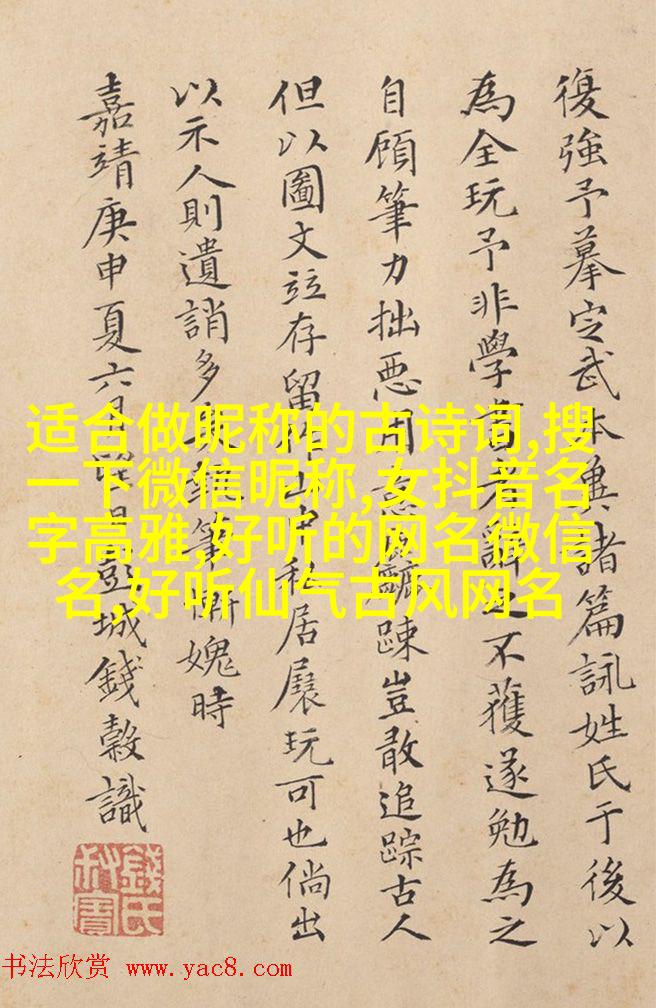 復強予摹定武本諸篇詠姓氏于後以
為全玩予非學書者辭之不獲遂勉為之
自顧筆力拙惡用意踈豈敢追踪古人
但以圖文竝存留山中私居展玩可也倘出
以示人則遺誚多矣筆慚媿時
嘉靖庚申夏六月彭城錢穀識
錢氏叔寶
适合做昵称的古诗词,搜
一下微信昵称,女抖音名
字高雅,好听的网名微信
名,好听仙气古风网名
书法欣赏 www.yac8.com